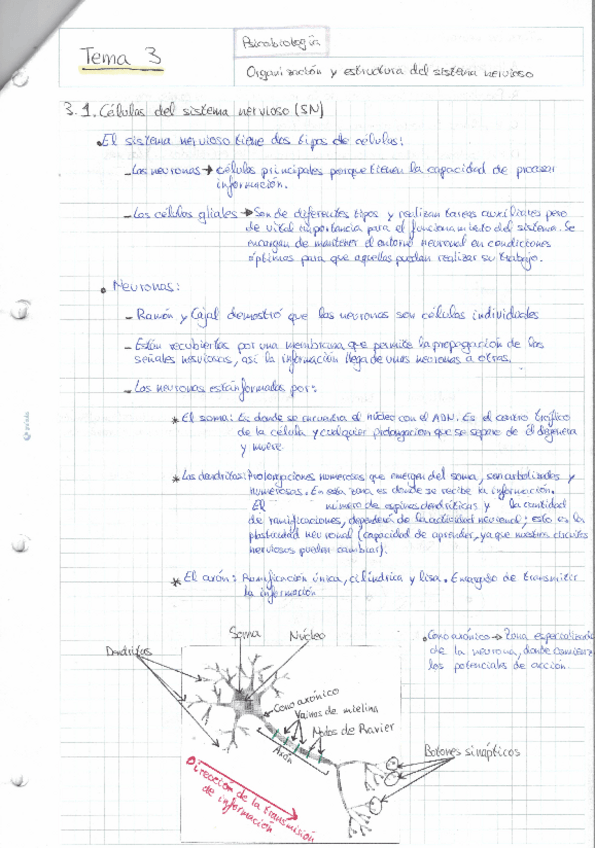 Tema 3
Psicobiología
Organización y estructura del sistema nervioso
3.1. Células del sistema nervioso (SN)
• El sistema nervioso tiene dos tipos de células:
- Las neuronas → células principales porque tienen la capacidad de procesar
información.
- Las células gliales → Son de diferentes tipos y realizan tareas auxiliares pero
de vital importancia para el funcionamiento del sistema. Se
encargan de mantener el entorno neuronal en condiciones
óptimas para que aquellas puedan realizar su trabajo.
• Neuronas:
- Ramón y Cajal demostró que las neuronas son células individuales
- Están recubiertas por una membrana que permite la propagación de las
señales nerviosas, así la información llega de unas neuronas a otras.
- Las neuronas están formadas por:
* El soma: Es donde se encuentra el núcleo con el ADN. Es el centro trófico
de la célula y cualquier prolongación que se separe de él degenera
y muere.
* Las dendritas: Prolongaciones numerosas que emergen del soma, son arbolizadas y
numerosas. En esta zona es donde se recibe la información.
El número de espinas dendríticas y la cantidad
de ramificaciones, dependerá de la actividad neuronal; esto es la
plasticidad neuronal (capacidad de aprender, ya que nuestros circuitos
nerviosos pueden cambiar).
* El axón: Ramificación única, cilíndrica y lisa. Encargado de transmitir
la información
• Cono axónico → Zona especializada
de la neurona, donde comienzan
los potenciales de acción.
Dendritas
Soma
Núcleo
Cono axónico
Vainas de mielina
Nodos de Ranvier
Axón
Botones sinápticos
Dirección de la transmisión
de información